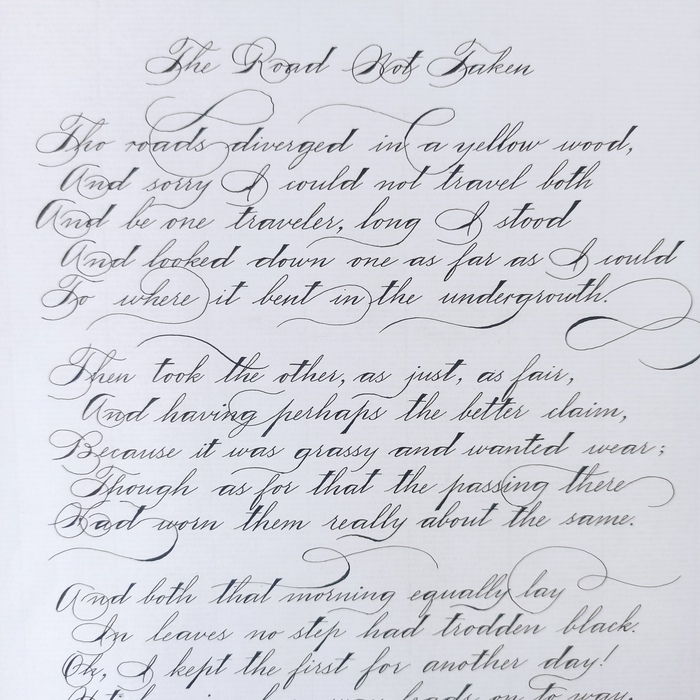 The Road Not Taken
Two roads diverged in a yellow wood,
And sorry I could not travel both
And be one traveler, long I stood
And looked down one as far as I could
To where it bent in the undergrowth.
Then took the other, as just, as fair,
And having perhaps the better claim,
Because it was grassy and wanted wear;
Though as for that the passing there
Had worn them really about the same.
And both that morning equally lay
In leaves no step had trodden black.
Oh, I kept the first for another day!
way leads on to way,